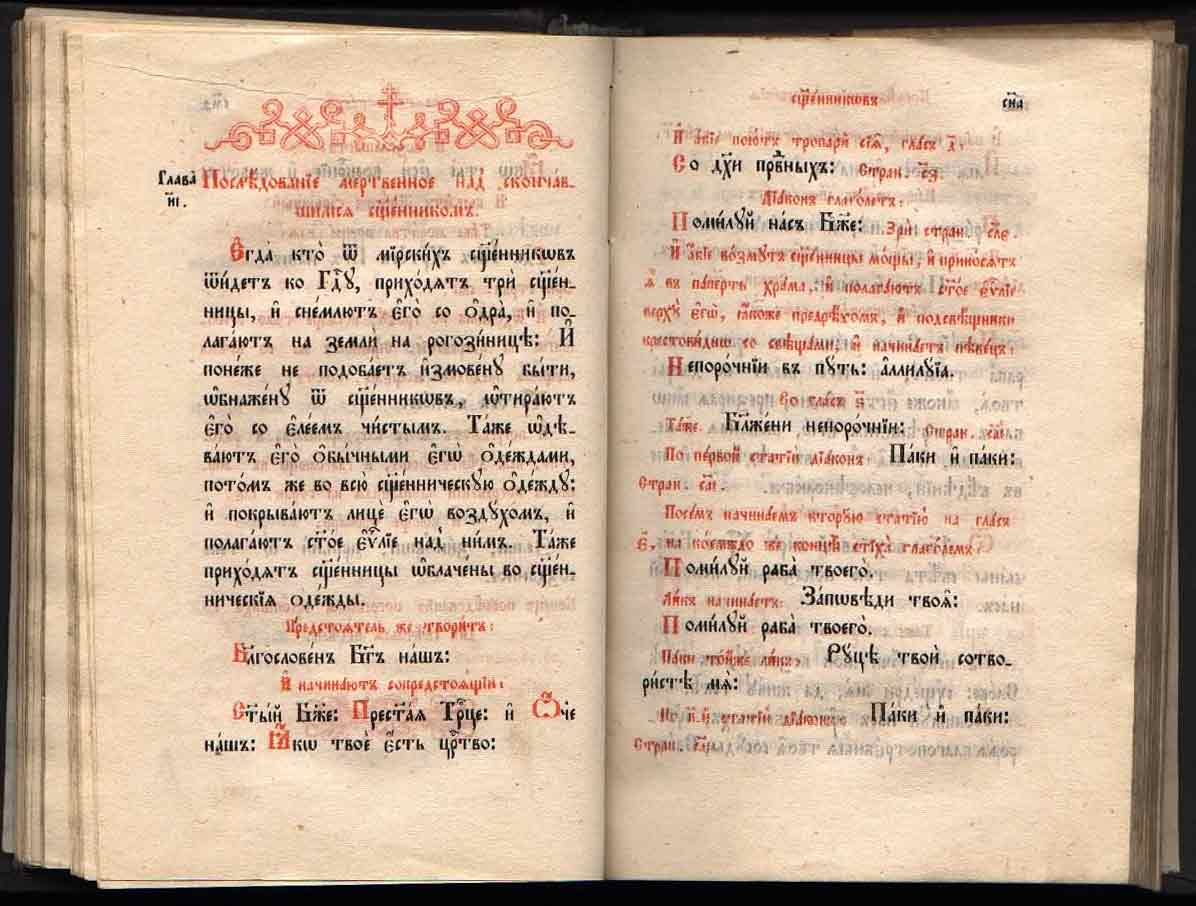 Глава̀
н҃і.
Послѣ́дованїе мертвенное над̾ скончав-
шимсѧ сщ҃е́нникомъ.
Є҆гда̀ кто̀ ѿ мїрски́хъ сщ҃е́нникѡвъ
ѿи́детъ ко гдⷭ҇ꙋ, прихо́дѧтъ трѝ сщ҃е́н-
ницы, и҆ сне́млютъ є҆го̀ со ѻ҆дра̀, и҆ по-
лага́ютъ на землѝ на рогози́ницѣ: И҆
поне́же не подоба́етъ и҆змове́нꙋ бы́ти,
ѡ҆бнаже́нꙋ ѿ сщ҃е́нникѡвъ, ѡ҆тира́ютъ
є҆го̀ со є҆ле́емъ чи́стымъ. Та́же ѡ҆дѣ-
ва́ютъ є҆го̀ ѻ҆бы́чными є҆гѡ̀ ѻ҆де́ждами,
пото́мъ же во всю̀ сщ҃е́нническꙋю ѻ҆де́ждꙋ:
и҆ покрыва́ютъ лицѐ є҆гѡ̀ воздꙋхо́мъ, и҆
полага́ютъ ст҃о́е є҆ѵⷢ҇лїе над̾ ни́мъ. Та́же
прихо́дѧтъ сщ҃е́нницы ѡ҆блаче́ны во сщ҃е́н-
ническїѧ ѻ҆де́жды.
Предстоѧ́тель же твори́тъ:
Блгⷭ҇ослове́нъ бг҃ъ на́шъ:
И҆ начина́ютъ сопредстоѧ́щїи:
Ст҃ы́й бж҃е: Прест҃а́ѧ трⷪ҇це: и҆ Ѻ҆́ч҃е
на́шъ: Ꙗ҆́кѡ твоѐ є҆́сть црⷭ҇тво:
сщ҃е́нникѡвъ
сн҃а
И҆ а҆́бїе пою́тъ тропари̑ сїѧ̑, гла́съ д҃.
Со дх҃и првⷣныхъ: Стран.
Дїа́конъ глаго́летъ:
Поми́лꙋй на́съ бж҃е: Зрѝ стран.
И҆ а҆́бїе во́змꙋтъ сщ҃е́нницы мо́щы, и҆ прино́сѧтъ
ѧ҆̀ въ па́перть хра́ма: и҆ полага́ютъ ст҃о́е є҆ѵⷢ҇лїе
верхꙋ̀ є҆гѡ̀, ꙗ҆́коже предреко́хомъ, и҆ подсвѣ́щники
крестови́днѡ со свѣща́ми: и҆ начина́етъ пѣве́цъ:
Непоро́чнїи въ пꙋ́ть: а҆ллилꙋ́їа.
Во гла́съ
Та́же. Бл҃же́ни непоро́чнїи: Стран.
По пе́рвой статїѝ дїа́конъ: Па́ки и҆ па́ки:
Стран.
Посе́мъ начина́емъ вторꙋ́ю статїю̀ на гла́съ
є҃, на ко́емждо же концѣ̀ стїха̀ глаго́лемъ:
Поми́лꙋй раба̀ твоего̀.
Ли́къ начина́етъ: За́пѡвѣди твоѧ̑:
Поми́лꙋй раба̀ твоего̀.
Па́ки то́йже ли́къ, Рꙋ́цѣ твоѝ сотво-
ри́стѣ мѧ̀:
По в҃-й статїѝ дїа́конъ: Па́ки и҆ па́ки:
Стран.